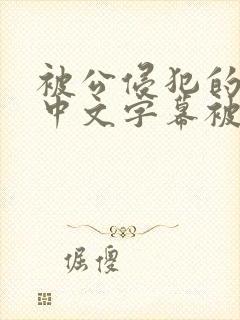 被公侵犯的
中文字幕被
倔傻